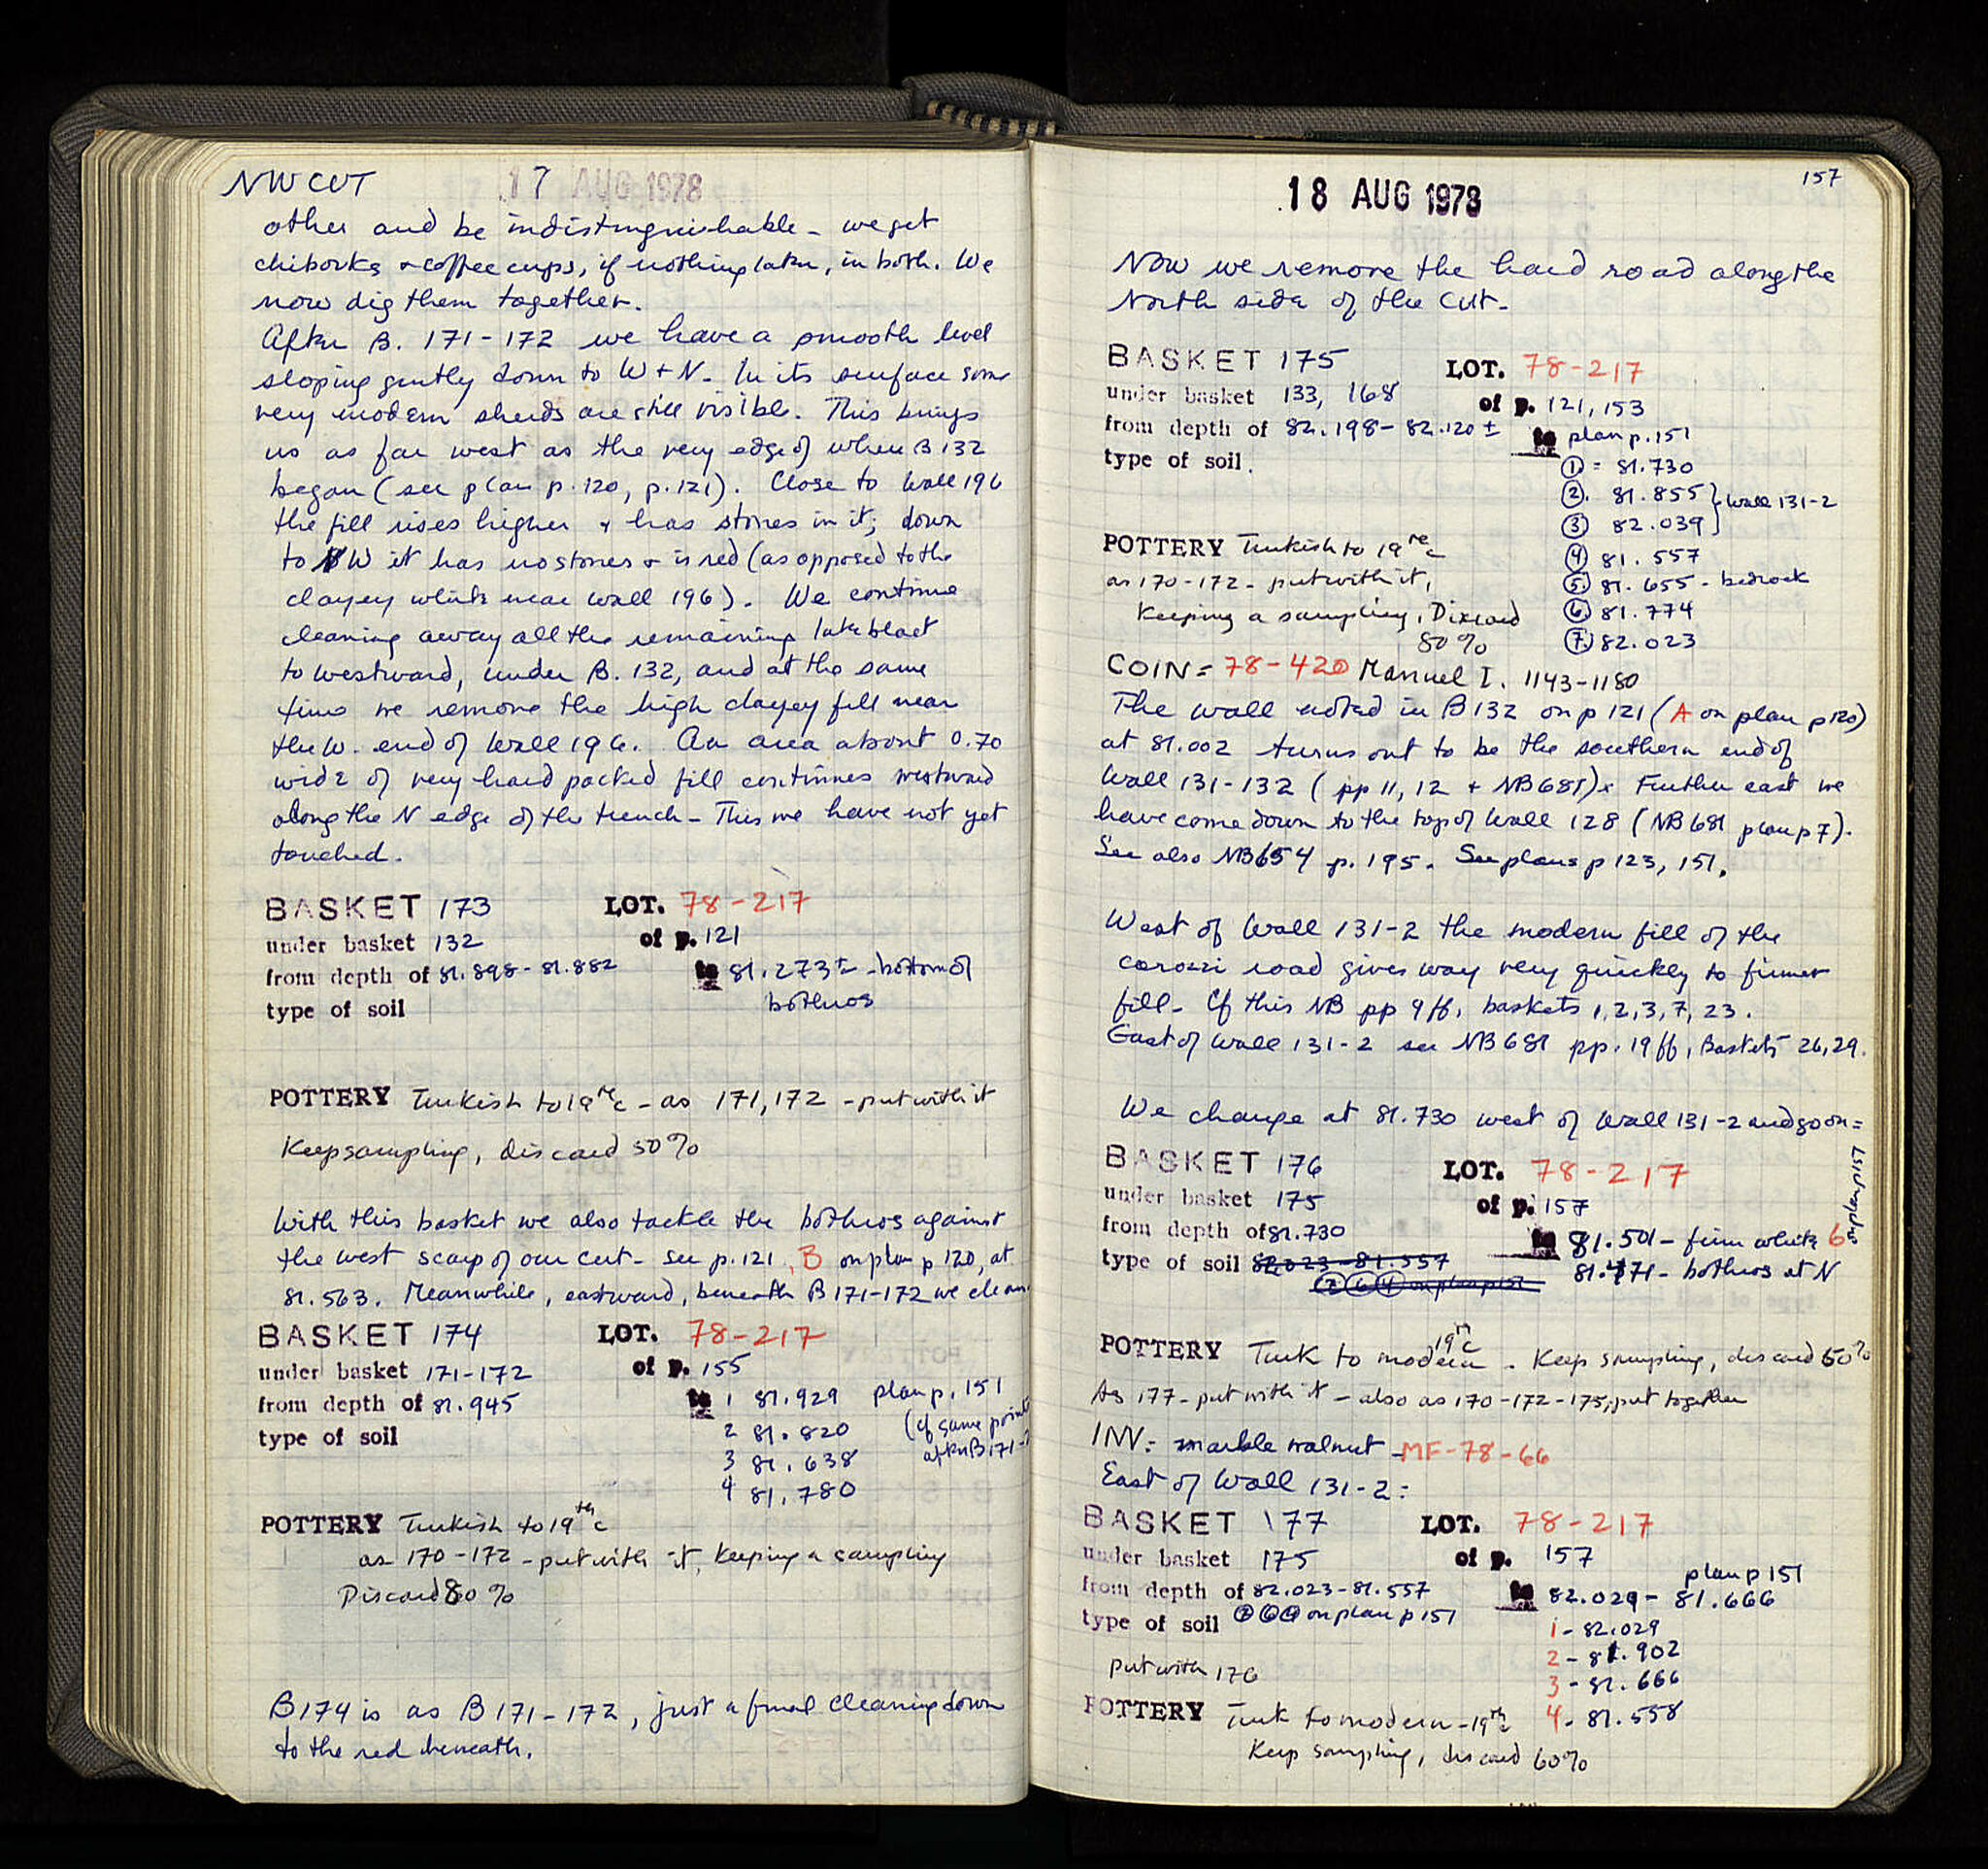 NW CUT
17 AUG 1978
other and be indistinguishable - we get
chibouks + coffee cups, if nothing later, in both. We
now dig them together.
After B. 171-172 we have a smooth level
sloping gently down to W + N. In its surface some
very modern sherds are still visible. This brings
us as far west as the very edge of where B 132
began (see plan p. 120, p. 121). Close to Wall 196
the fill rises higher + has stones in it; down
to W it has no stones + is red (as opposed to the
clayey white near wall 196). We continue
cleaning away all the remaining late black
to westward, under B. 132, and at the same
time we remove the high clayey fill near
the W. end of Wall 196. An area about 0.70
wide of very hard packed fill continues westward
along the N edge of the trench - This we have not yet
touched.
BASKET 173 LOT. 78-217
under basket 132 of p. 121
from depth of 81.898 - 81.882 to 81.273± - bottom of
bothros
type of soil
POTTERY Turkish to 19th c - as 171, 172 - put with it
Keep sampling, discard 50%
With this basket we also tackle the bothros against
the west scarp of our cut - see p. 121, B on plan p 120, at
81.563. Meanwhile, eastward, beneath B 171-172 we clean
BASKET 174 LOT. 78-217
under basket 171-172 of p. 155
from depth of 81.945 to 1 81.929 plan p. 151
type of soil 2 81.820 (cf same points
3 81.638 after B 171-
4 81.780
POTTERY Turkish to 19th c
as 170-172 - put with it, keeping a sampling
Discard 80%
B 174 is as B 171-172, just a final cleaning down
to the red beneath.
157
18 AUG 1978
Now we remove the hard road along the
North side of the cut.
BASKET 175 LOT. 78-217
under basket 133, 168 of p. 121, 153
from depth of 82.198 - 82.120± to plan p. 151
type of soil.
① = 81.730
②. 81.855 } Wall 131-2
③ 82.039
④ 81.557
⑤ 81.655 - bedrock
⑥ 81.774
⑦ 82.023
POTTERY Turkish to 19th c
as 170-172 - put with it,
Keeping a sampling, Discard
80%
COIN = 78-420 Manuel I. 1143-1180
The wall noted in B 132 on p 121 (A on plan p 120)
at 81.002 turns out to be the southern end of
Wall 131-132 (pp 11, 12 + NB 681). Further east we
have come down to the top of Wall 128 (NB 681 plan p 7).
See also NB 654 p. 195. See plans p 123, 151.
West of Wall 131-2 the modern fill of the
carozzi road gives way very quickly to firmer
fill - Cf this NB pp 9ff, baskets 1, 2, 3, 7, 23.
East of Wall 131-2 see NB 681 pp. 19ff, Baskets 26, 29.
We change at 81.730 west of Wall 131-2 and go on =
BASKET 176 LOT. 78-217
under basket 175 of p. 157
from depth of 81.730 to 81.501 - firm white 6 on plan p 151
type of soil 82.023 - 81.557 81.471 - bothros at N
⑦⑥④ on plan p 151
POTTERY Turk to modern 19th c. Keep sampling, discard 60%
As 177 - put with it - also as 170-172-175, put together
INV: marble walnut - MF-78-66
East of Wall 131-2:
BASKET 177 LOT. 78-217
under basket 175 of p. 157
plan p 151
from depth of 82.023 - 81.557 to 82.029 - 81.666
type of soil ⑦⑥④ on plan p 151
1 - 82.029
2 - 81.902
3 - 81.666
4 - 81.558
put with 176
POTTERY Turk to modern - 19th c
Keep sampling, discard 60%